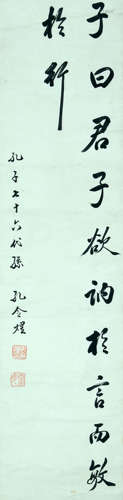 子曰君子欲訥於言而敏
於行
孔子七十六代孫 孔令煜